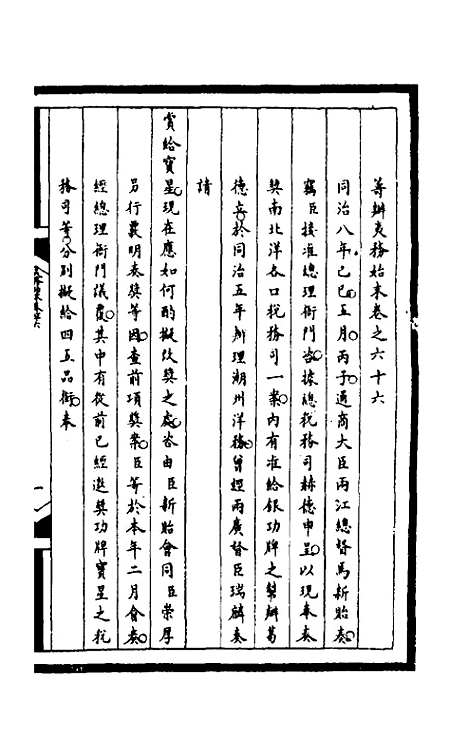 籌辦夷務始末卷之六十六
同治八年己巳五月丙子通商大臣兩江總督馬新貽奏
竊臣接准總理衙門咨據總稅務司赫德申呈以現奉奏
獎南北洋各口稅務司一案內有准給銀功牌之幫辦葛
德立於同治五年辦理潮州洋務曾經兩廣督臣瑞麟奏
請
賞給寶星現在應如何酌擬改獎之處咨由臣新貽會同臣崇厚
另行覈明奏獎等因查前項獎案臣等於本年二月會奏
經總理衙門議覆其中有從前已經選獎功牌寶星之稅
務司等分別擬給四五品銜奉